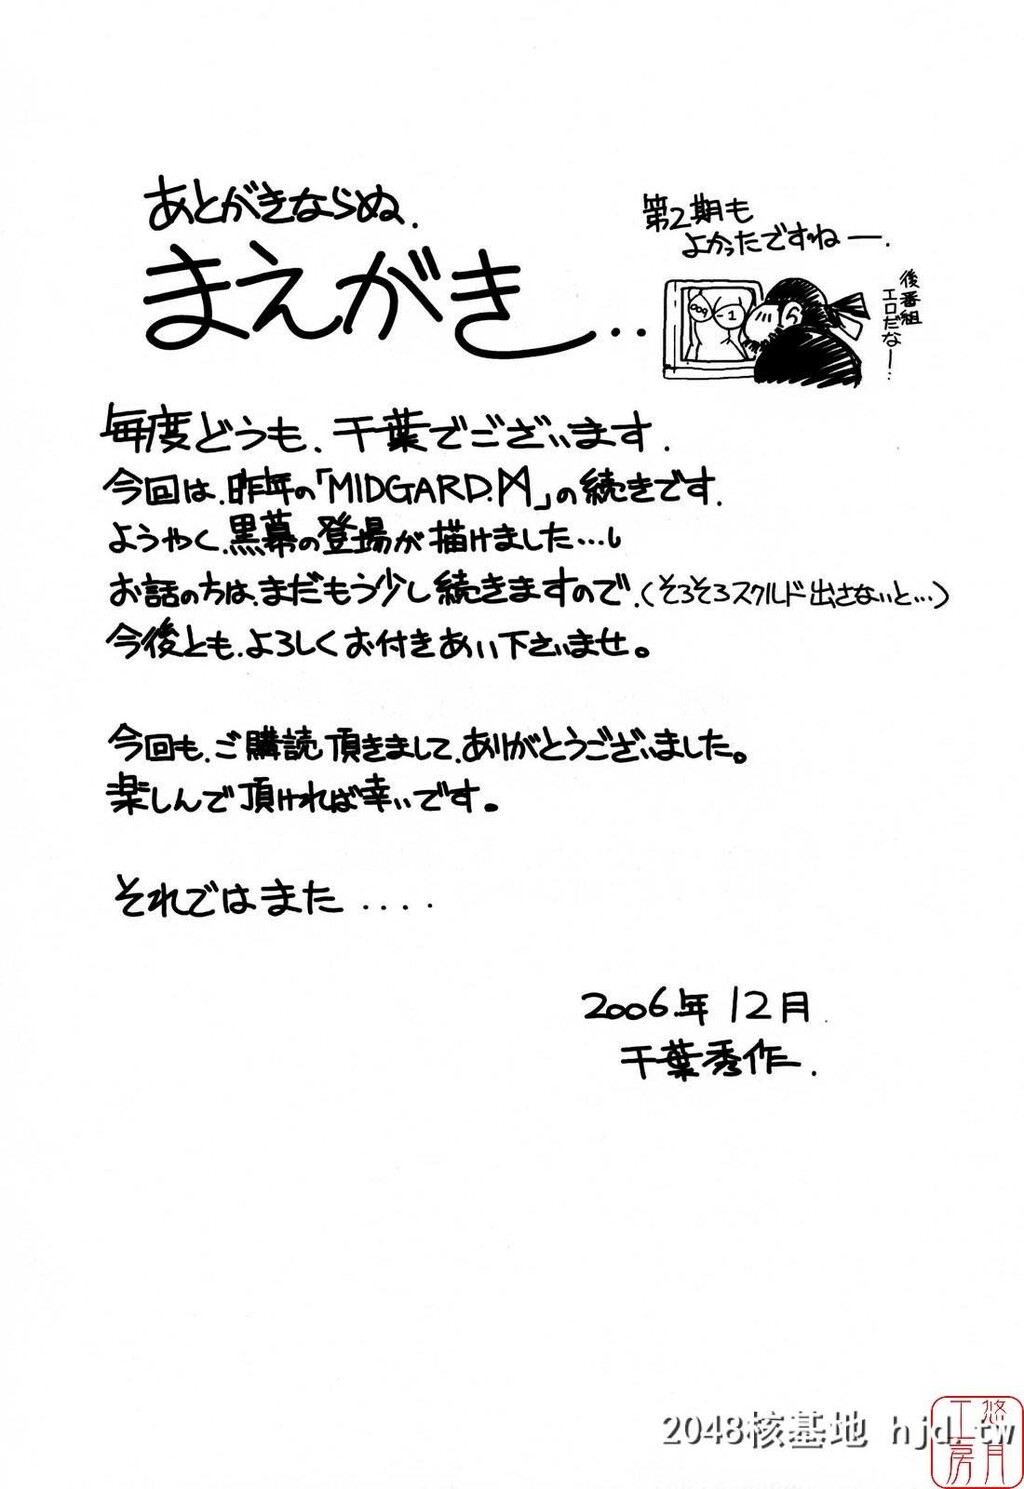 あとがきならぬ、
まえがき…
第2期も
よかったですねー。
後番組
エロだなー…
毎度どうも、千葉でございます。
今回は、昨年の「MIDGARD.M」の続きです。
ようやく、黒幕の登場が描けました…
お話のちは、まだもう少し続きますので、(そろそろスクルド出さないと…)
今後とも、よろしくお付きあい下さいませ。
今回も、ご購読頂きまして、ありがとうございました。
楽しんで頂ければ幸いです。
それではまた....
2006年12月
千葉秀作.
2048核基地 hjd.tw
悠月工房